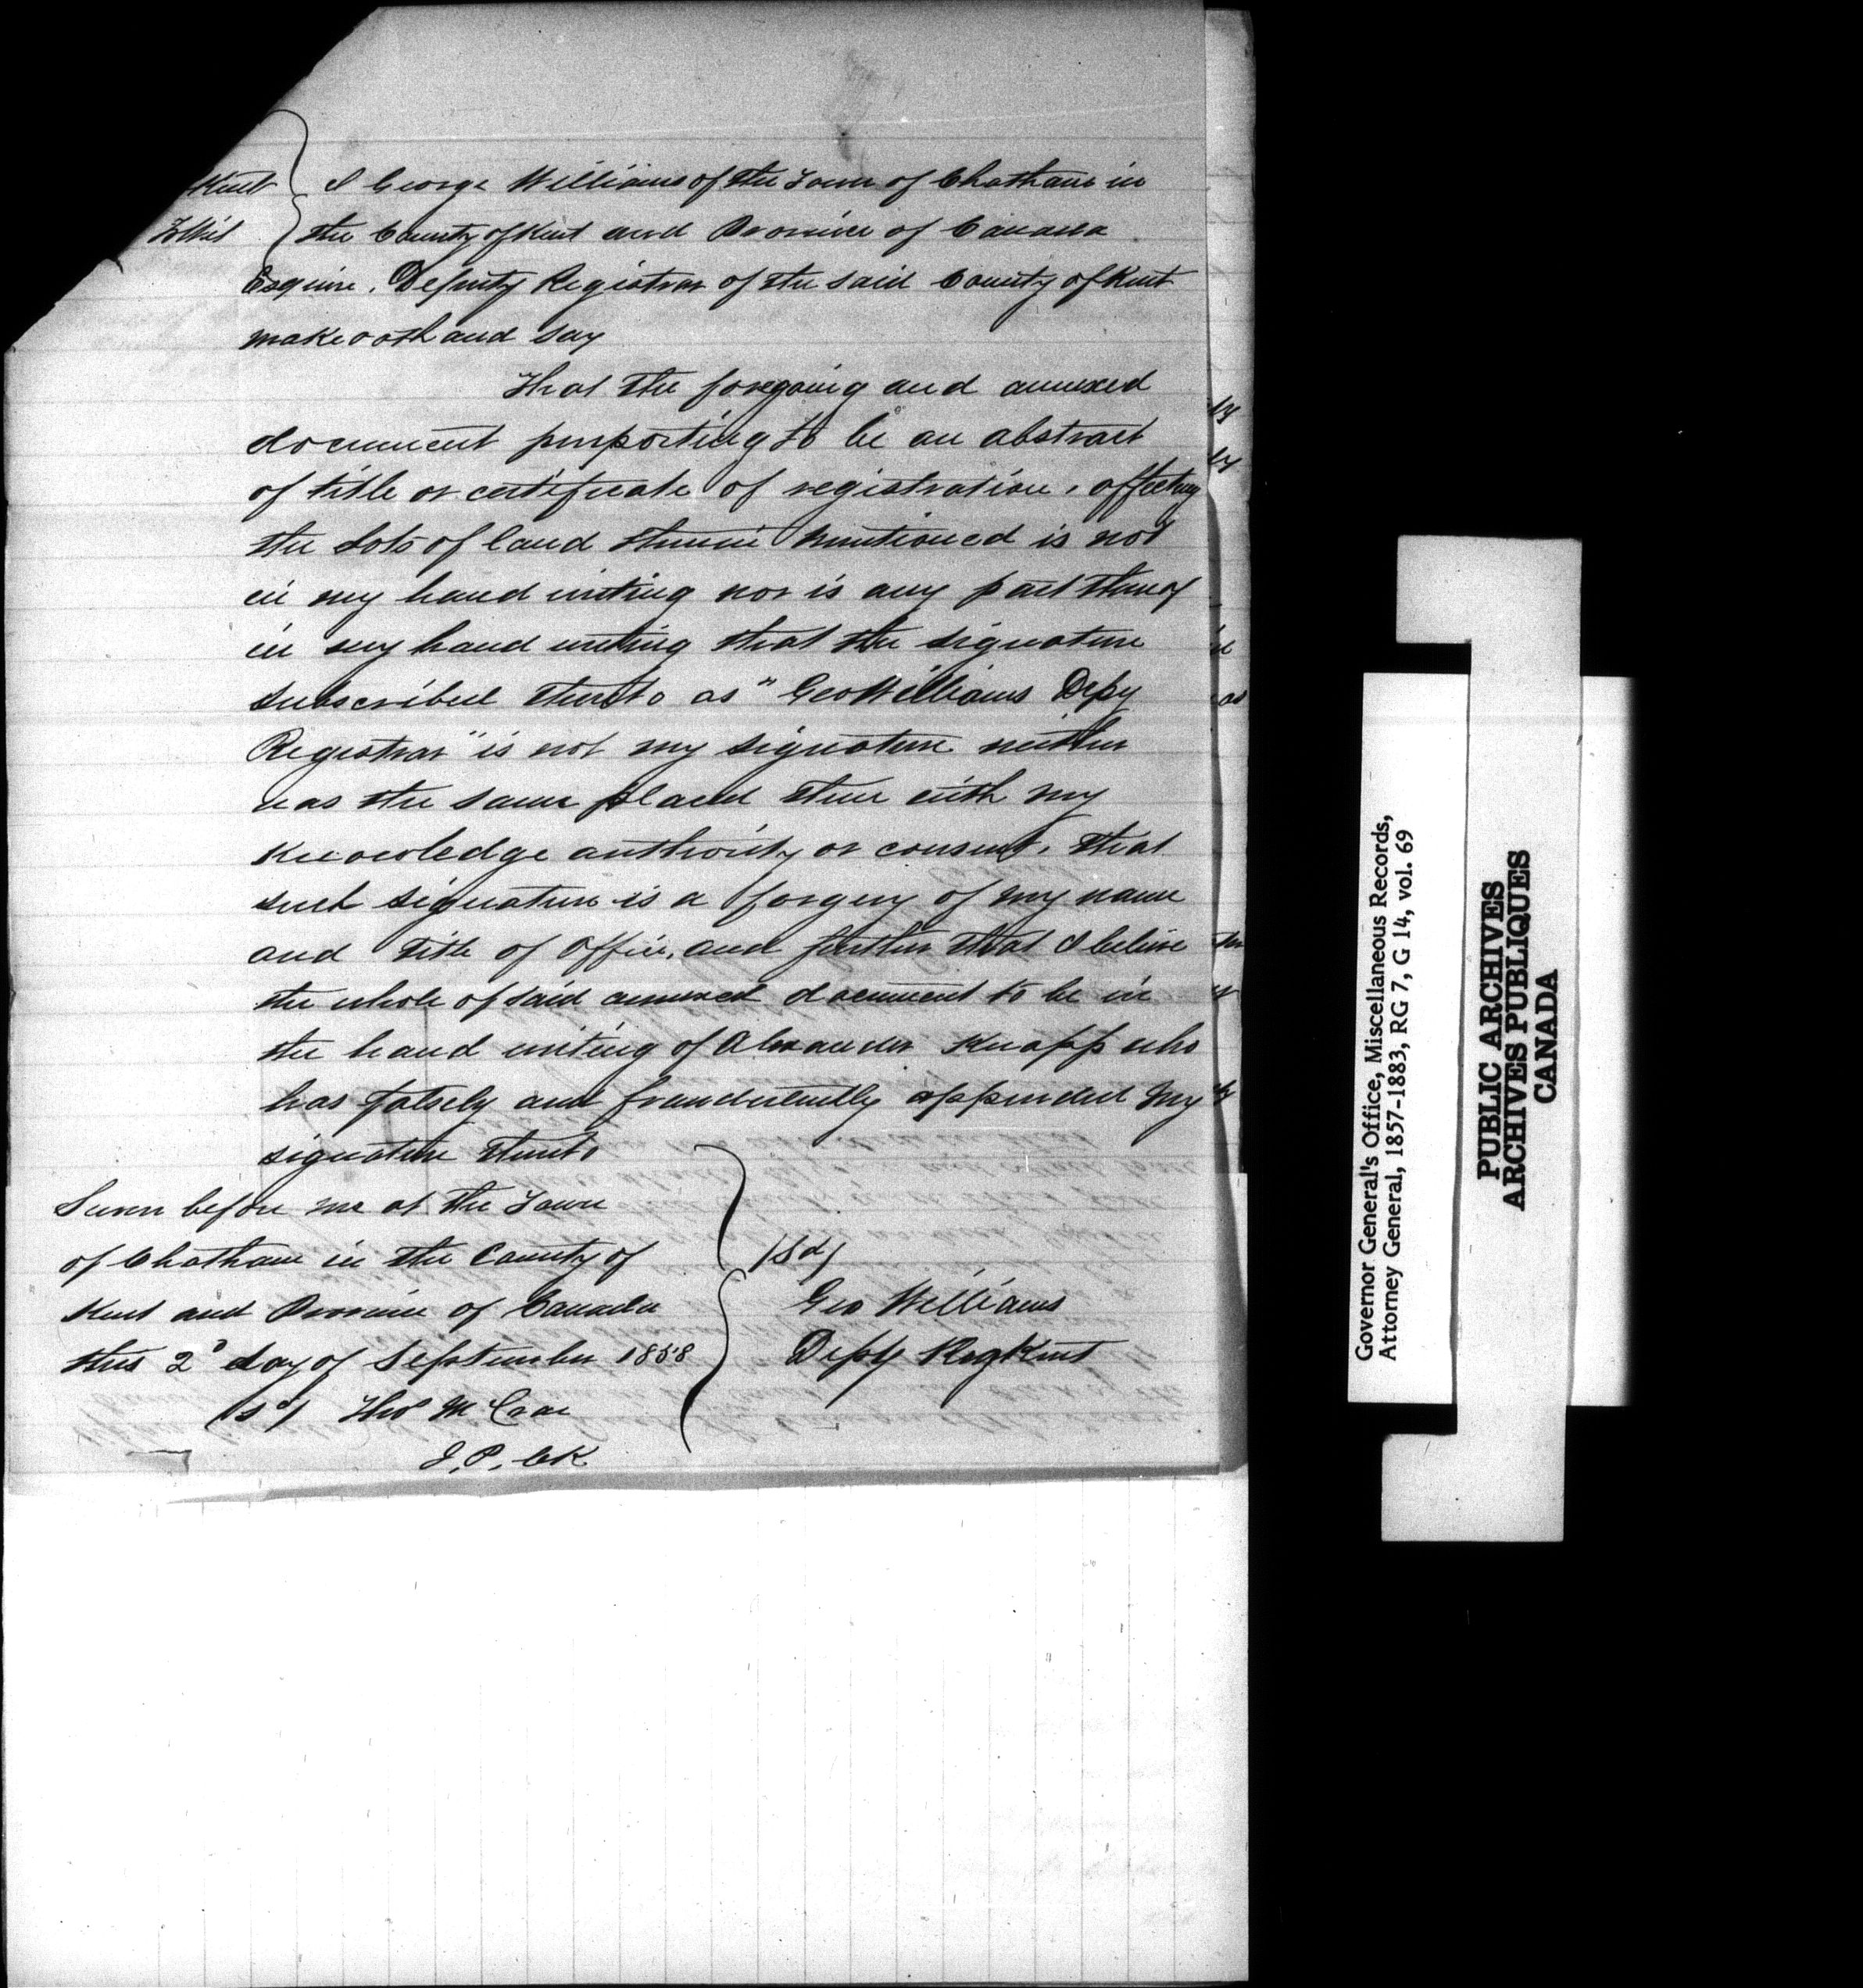 Kent
To Wit
I George Williams of the Town of Chatham in
the County of Kent and Province of Canada
Esquire. Deputy Registrar of the said County of Kent
make oath and say
That the foregoing and annexed
document purporting to be an abstract
of title or certificate of registration, affecting
the Lots of land therein mentioned is not
in my hand writing nor is any part thereof
in my hand writing that the signature
subscribed thereto as "Geo Williams Depy
Registrar" is not my signature neither
was the same placed there with my
knowledge authority or consent, that
such signature is a forgery of my name
and title of Office, and further that I believe
the whole of said annexed document to be in
the hand writing of Alexander Knapp who
has falsely and fraudulently appended my
signature thereto
Sworn before me at the Town
of Chatham in the County of
Kent and Province of Canada
this 2d day of September 1858
(sd) Thos McCrae
J.P. CK
(Sd)
Geo Williams
Depy Reg Kent
Governor General's Office, Miscellaneous Records,
Attorney General, 1857-1883, RG 7, G 14, vol. 69
PUBLIC ARCHIVES
ARCHIVES PUBLIQUES
CANADA